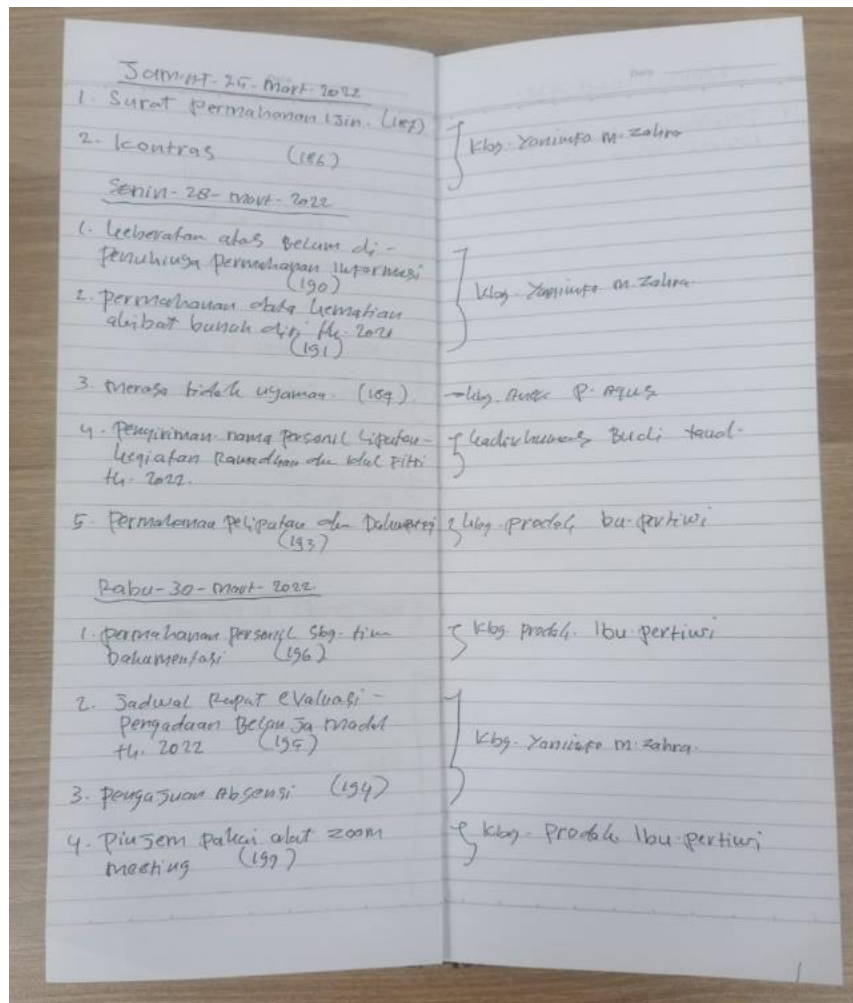 Jam'at-25-Mart-2022
1. Surat permahonan Izin. (187)
2. Kontras (186)
} Kbg. Yaninfo M. Zahra
Senin-28-Mart-2022
1. Keberatan atas Belum di-
Penuhinya permahonan Informasi
(190)
2. Permahonan data kematian
akibat bunuh diri th. 2021
(191)
} Kbg. Yaninfo M. Zahra
3. Merasa tidak nyaman. (189) → Kbg. P. Agus
4. Pengiriman nama personil Liputan-
kegiatan Ramadhan dan Idul Fitri
th. 2022.
} Kadivhumas Budi
5. Permahonan Peliputan dan
(193)
} Kbg. prodok bu-pertiwi
Rabu-30-Mart-2022
1. Permahonan personil sbg. tim
Dakumentasi (196)
} Kbg. prodok. Ibu pertiwi
2. Jadwal Rapat evaluasi-
Pengadaan Belanja Madal
th. 2022 (195)
3. Pengajuan Absensi (194)
} Kbg. Yaninfo M. Zahra.
4. Pinjem pakai alat zoom
meeting (199)
} Kbg. Prodok Ibu pertiwi